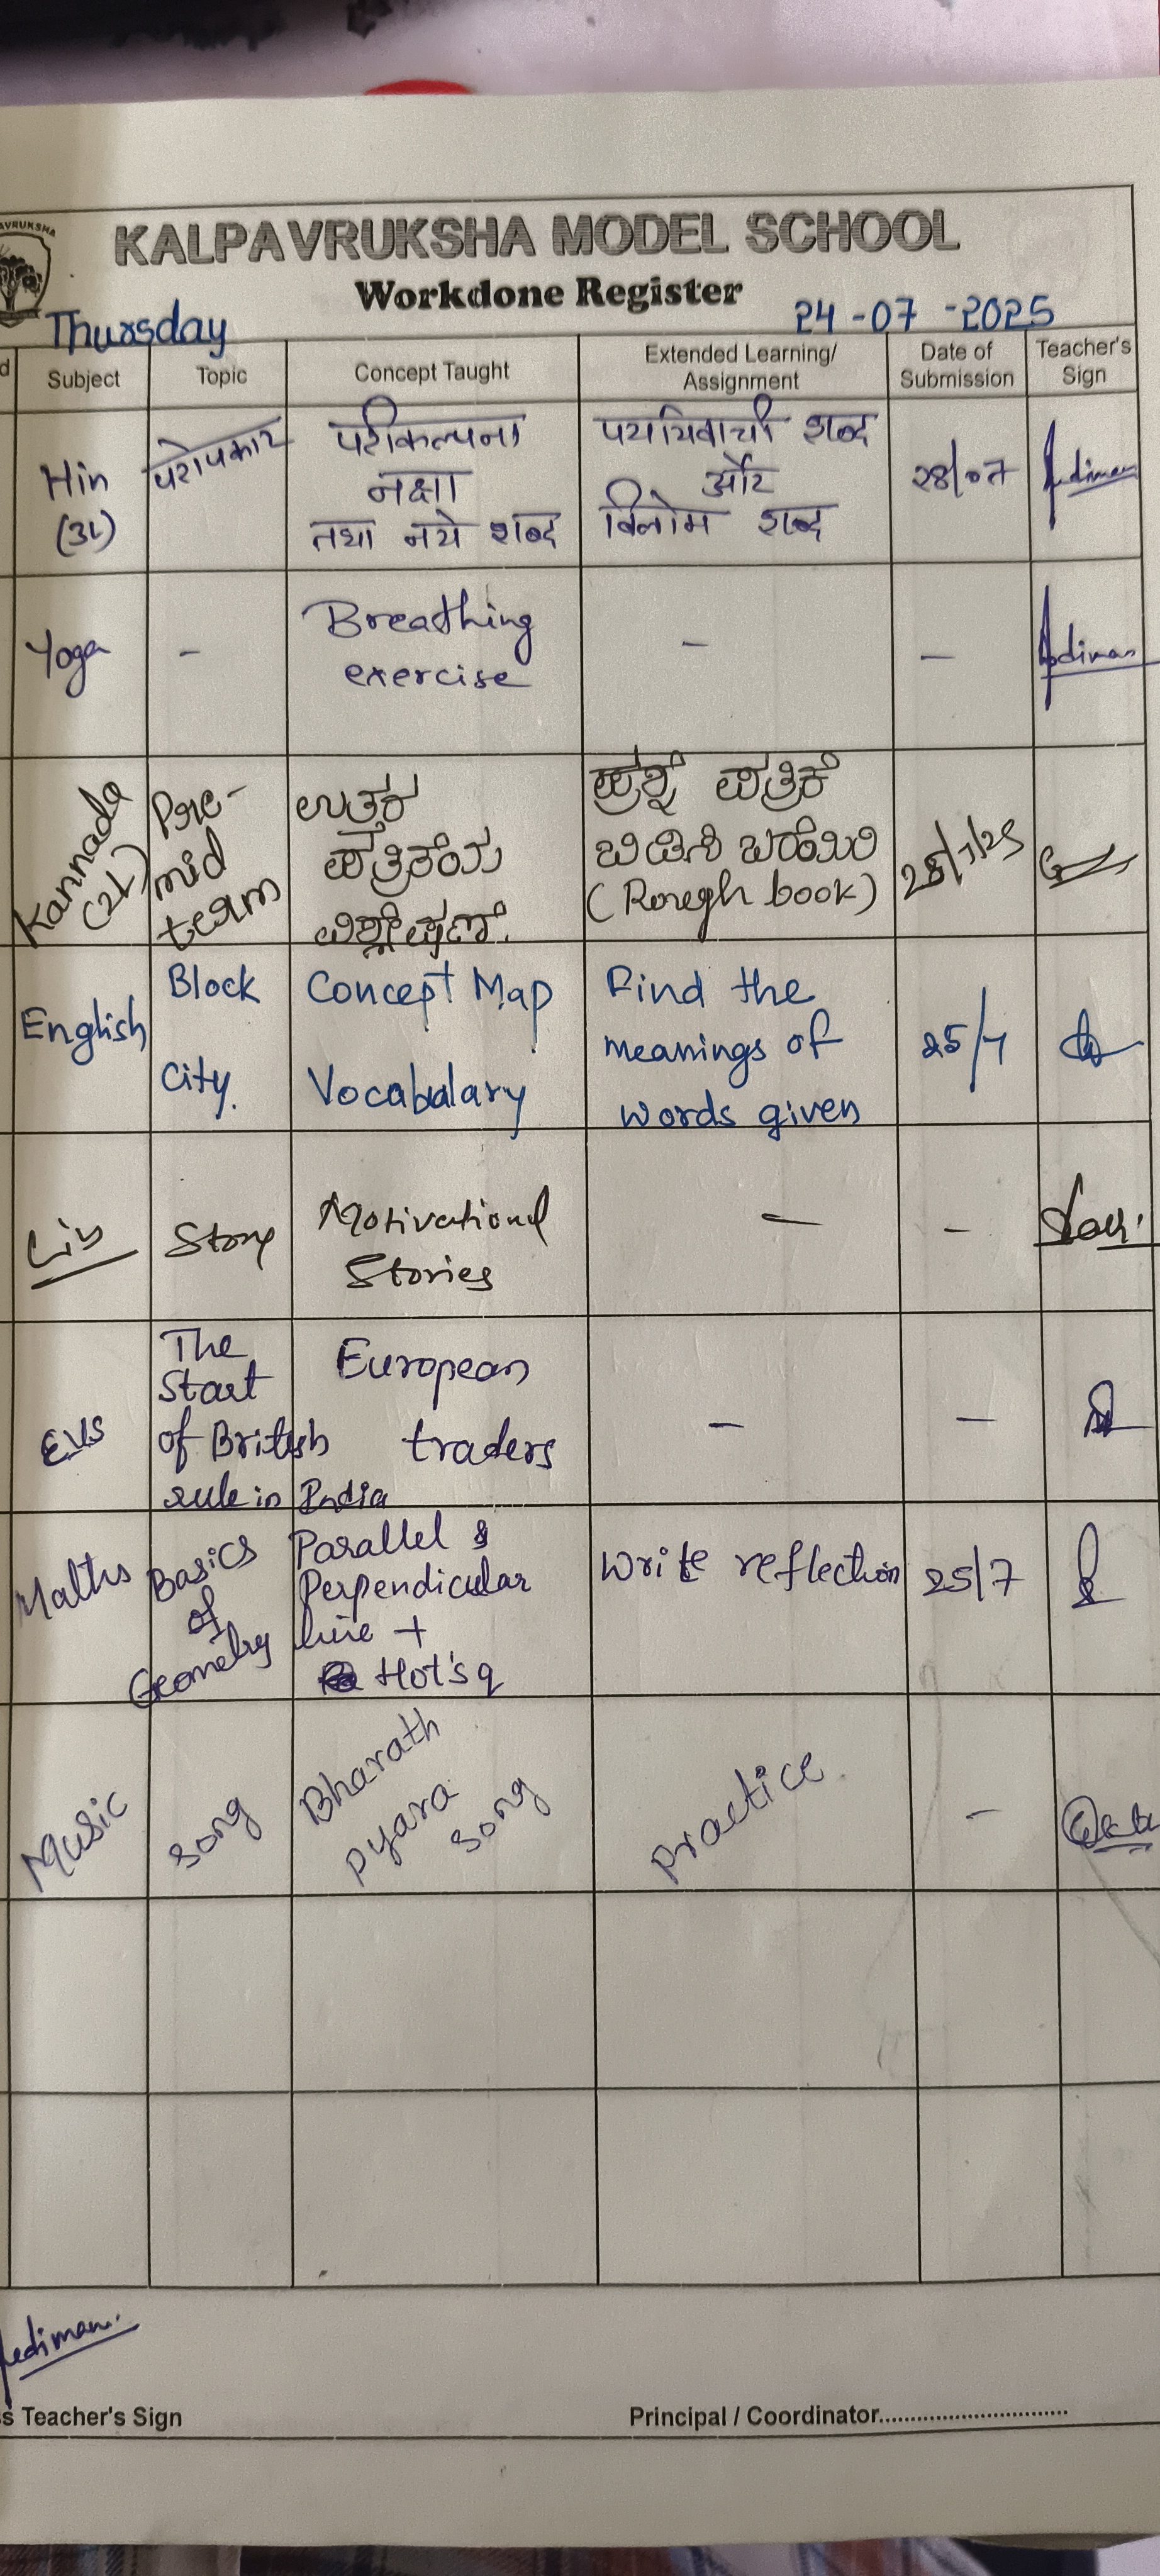 AVRUKSHA
KALPAVRUKSHA MODEL SCHOOL
Workdone Register
Thursday 24-07-2025
d Subject Topic Concept Taught Extended Learning/ Assignment Date of Submission Teacher's Sign
Hin (3L) परोपकार परीकल्पना नक्षा तथा नये शब्द पर्यायवाची शब्द और विलोम शब्द 28/07
Yoga - Breathing exercise - -
Kannada (2L) Pre-mid team ಉತ್ತರ ಪತ್ರಿಕೆಯ ವಿಶ್ಲೇಷಣೆ. ಪ್ರಶ್ನೆ ಪತ್ರಿಕೆ ಬಿಡಿಸಿ ಬರೆಯಿರಿ (Rough book) 25/7/25
English Block City. Concept Map Vocabulary Find the meanings of words given 25/7
Lib Story Motivational Stories - -
EVS The Start of British rule in India European traders - -
Maths Basics of Geometry Parallel & Perpendicular line + Hot's q Write reflection 25/7
Music song Bharath pyara song practice. -
s Teacher's Sign Principal / Coordinator............................